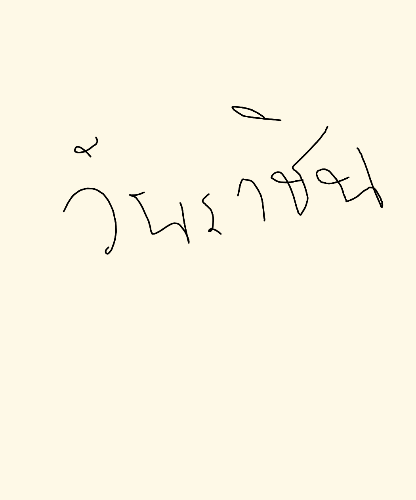 วันราชัน